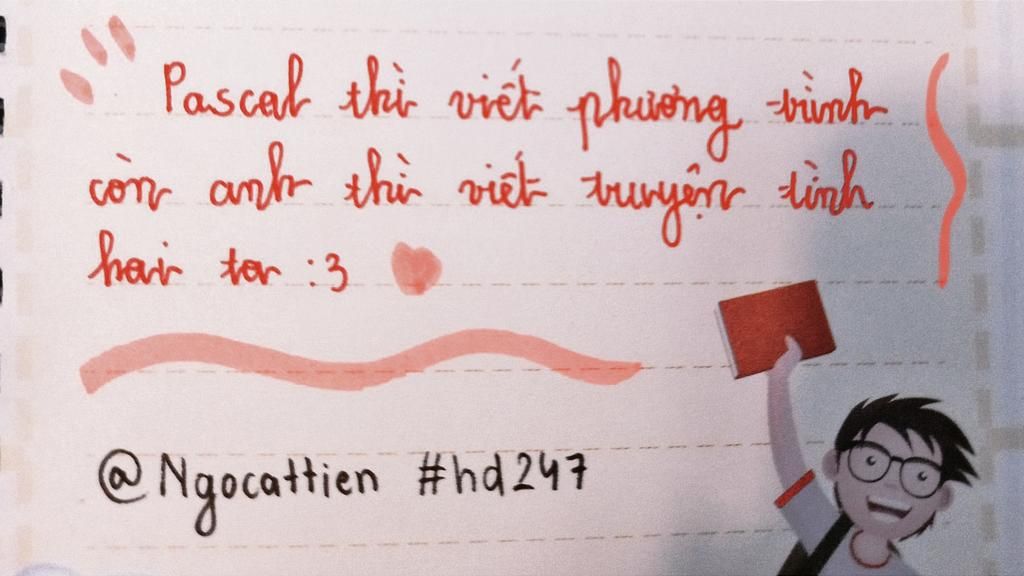 Pascal thì viết phương trình
còn anh thì viết truyện tình
hai ta :3
@Ngocattien #hd247